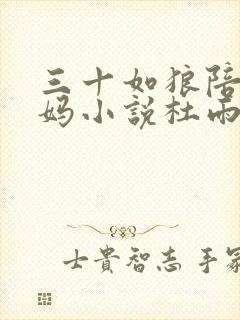 三十如狼陪
妈小說杜雨
士貴智志手冢